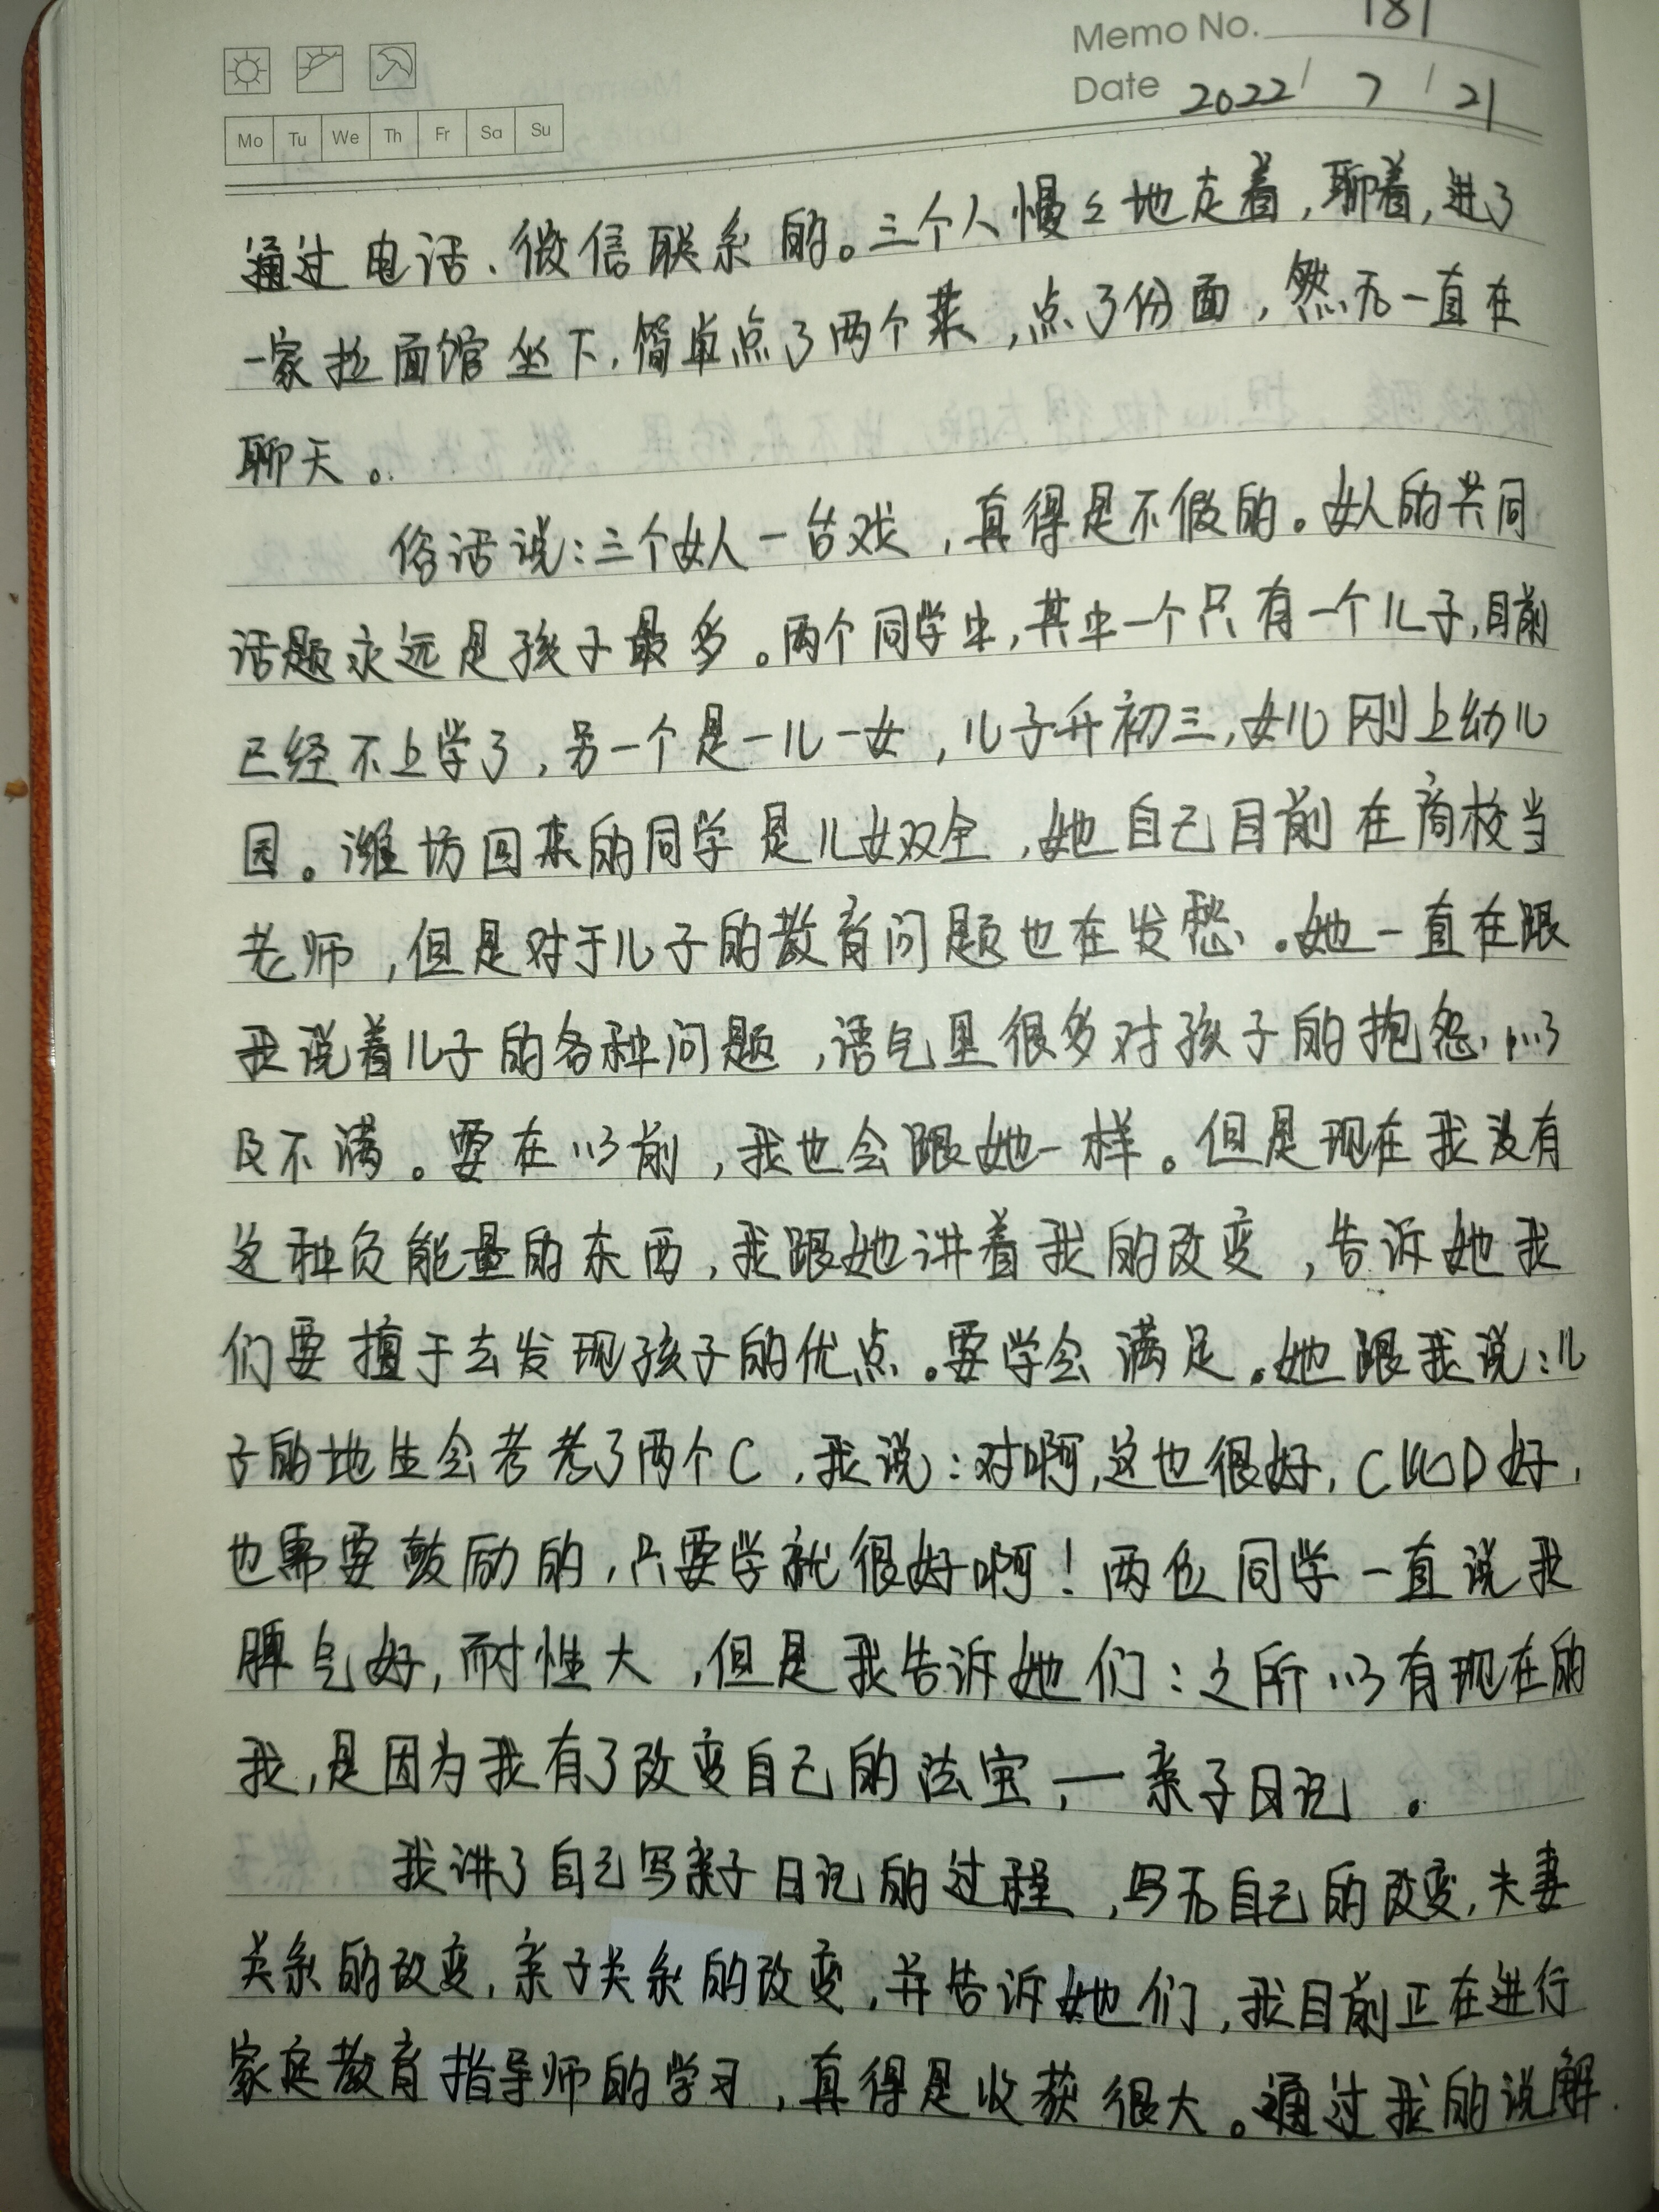 Memo No. 181
Date 2022 / 7 / 21
Mo Tu We Th Fr Sa Su
通过电话、微信联系的。三个人慢々地走着,聊着,进了
一家拉面馆坐下,简单点了两个菜,点了份面,然后一直在
聊天。
俗话说:三个女人一台戏,真得是不假的。女人的共同
话题永远是孩子最多。两个同学中,其中一个只有一个儿子,目前
已经不上学了,另一个是一儿一女,儿子升初三,女儿刚上幼儿
园。潍坊回来的同学是儿女双全,她自己目前在商校当
老师,但是对于儿子的教育问题也在发愁。她一直在跟
我说着儿子的各种问题,语气里很多对孩子的抱怨,以
及不满。要在以前,我也会跟她一样。但是现在我没有
这种负能量的东西,我跟她讲着我的改变,告诉她我
们要擅于去发现孩子的优点。要学会满足。她跟我说:儿
子的地生会考考了两个C,我说:对啊,这也很好,C比D好,
也需要鼓励的,只要学就很好啊!两位同学一直说我
脾气好,耐性大,但是我告诉她们:之所以有现在的
我,是因为我有了改变自己的法宝,—亲子日记。
我讲了自己写亲子日记的过程,写后自己的改变,夫妻
关系的改变,亲子关系的改变,并告诉她们,我目前正在进行
家庭教育指导师的学习,真得是收获很大。通过我的说解.